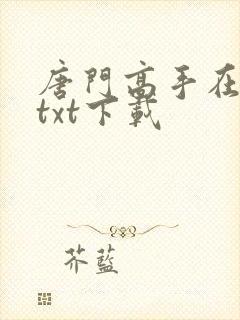 唐門高手在
txt下載
芥藍